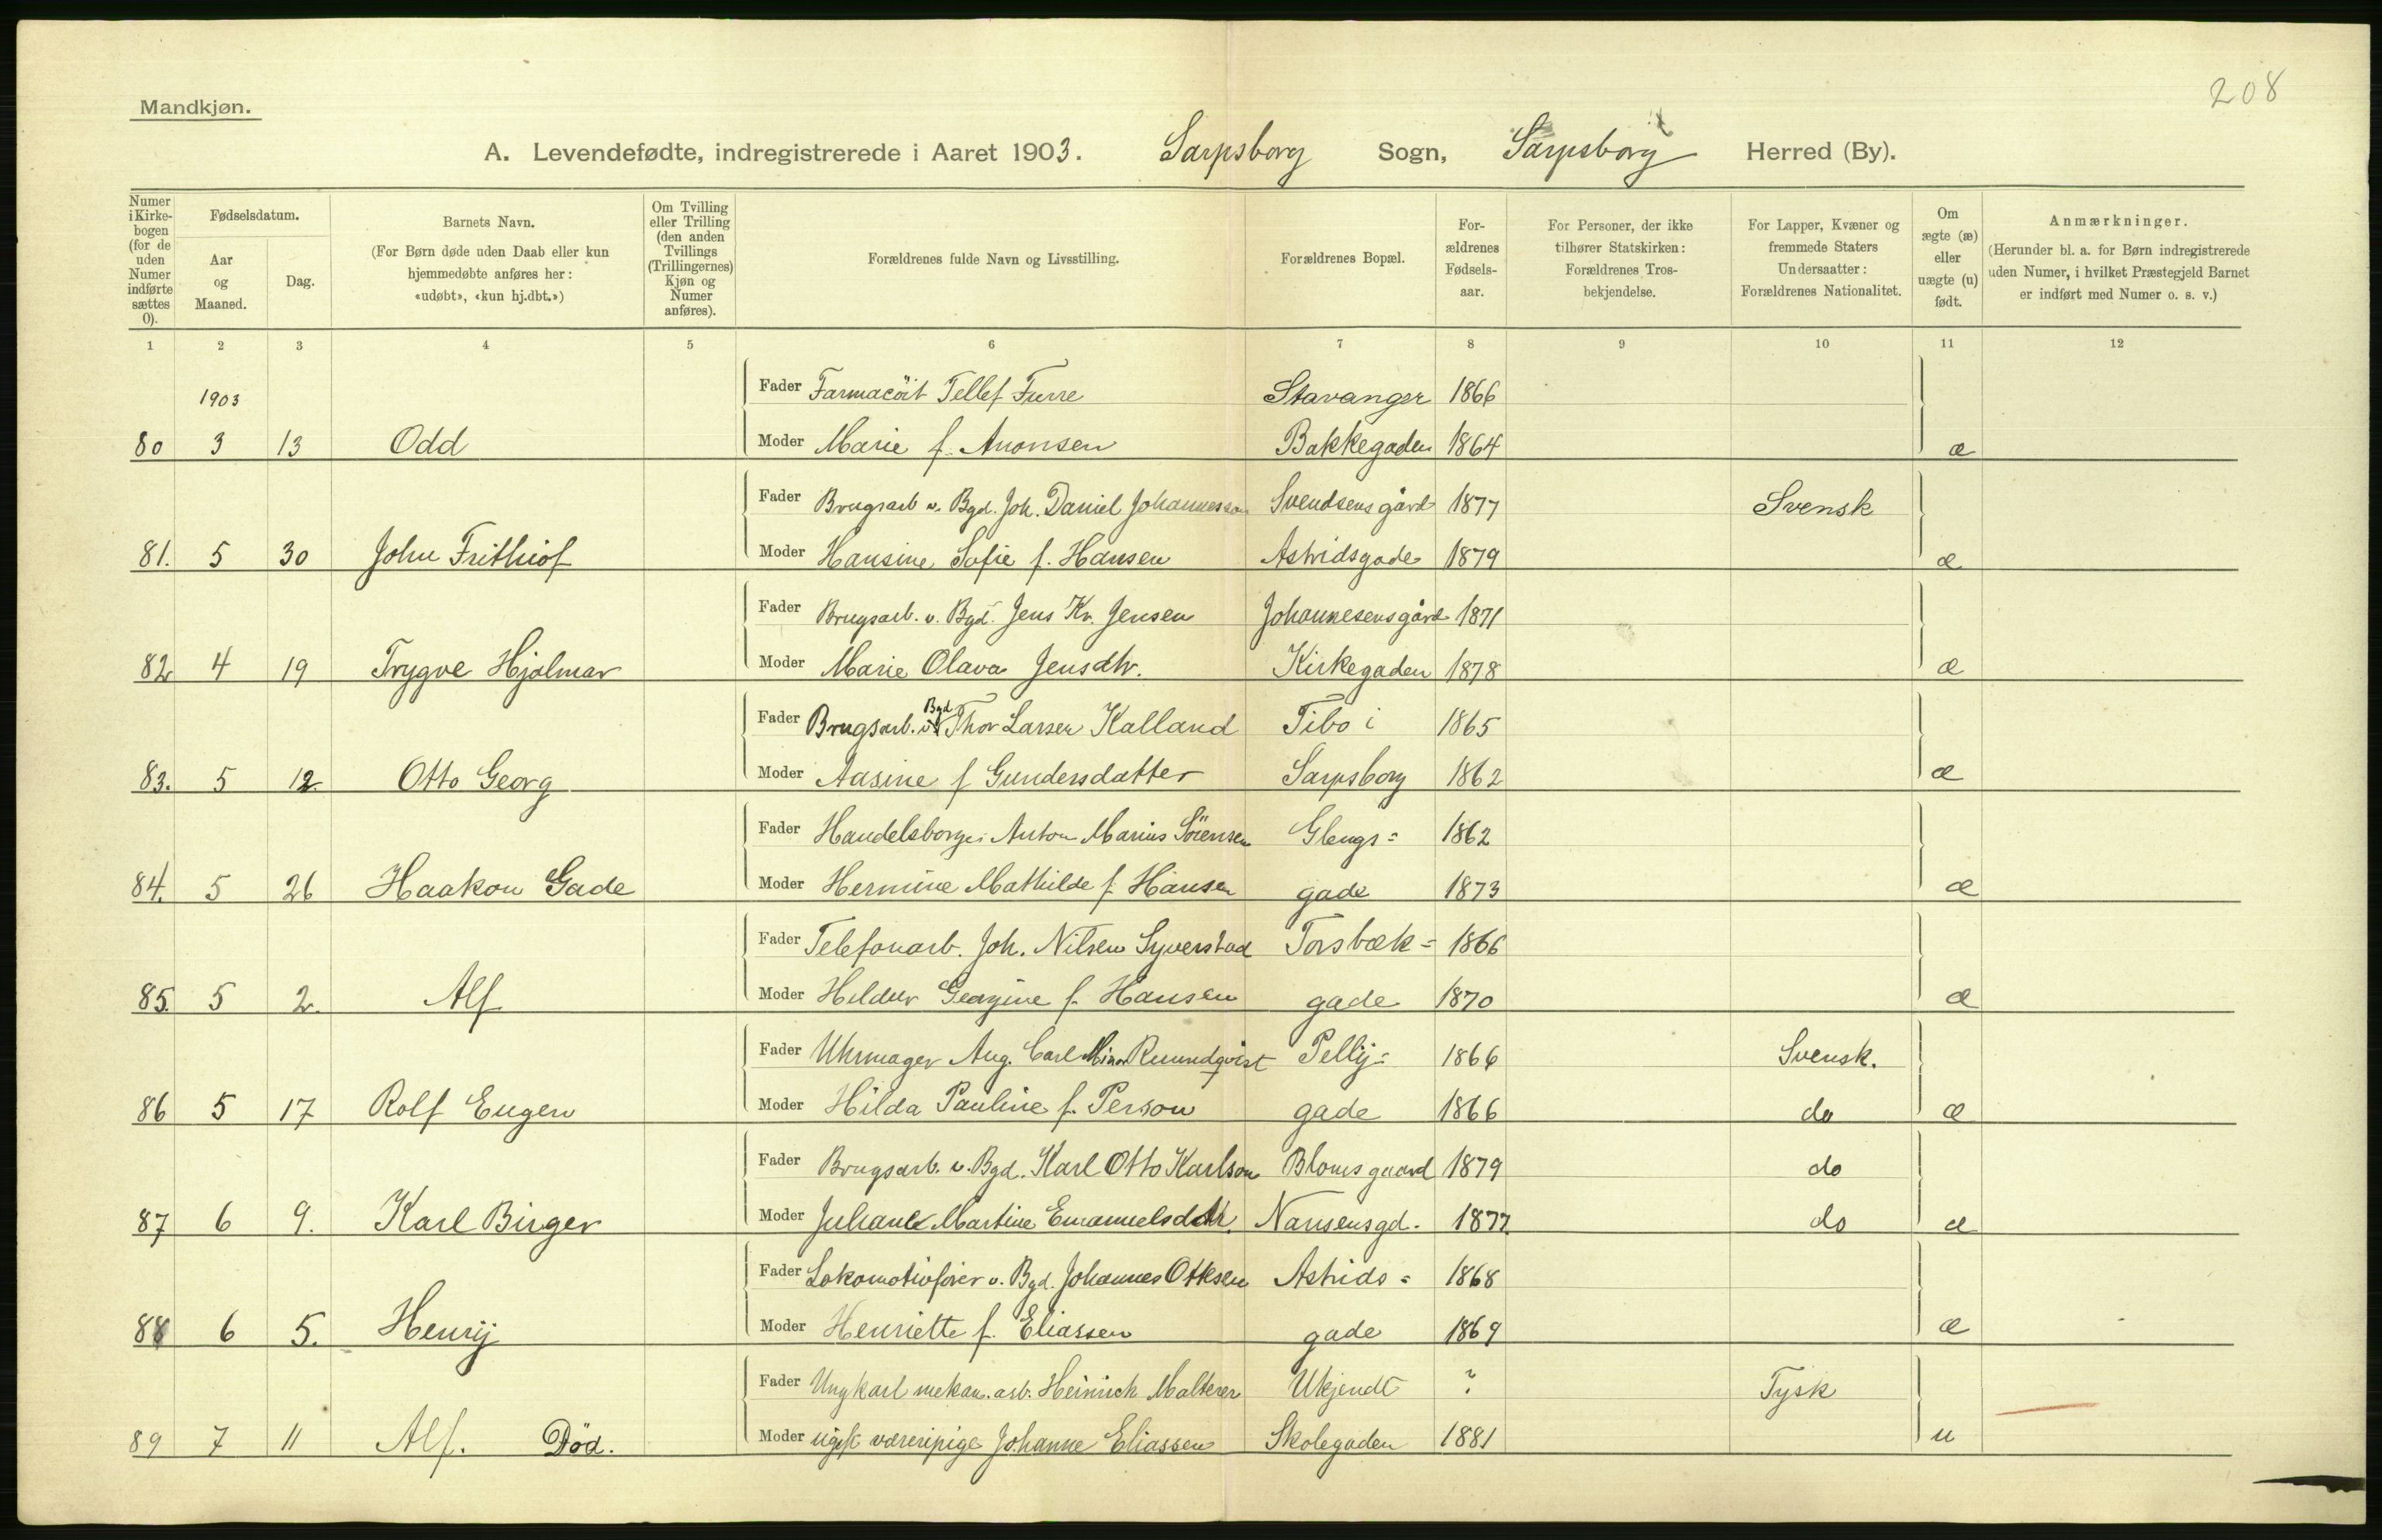 208
Mandkjøn.
A. Levendefødte, indregistrerede i Aaret 1903. Sarpsborg Sogn, Sarpsborg Herred (By).
Numer i Kirkebogen (for de uden Numer indførte sættes 0).
Fødselsdatum.
Aar og Maaned.
Dag.
Barnets Navn.
(For Børn døde uden Daab eller kun hjemmedøbte anføres her: «udøbt», «kun hj.dbt.»)
Om Tvilling eller Trilling (den anden Tvillings (Trillingernes) Kjøn og Numer anføres).
Forældrenes fulde Navn og Livsstilling.
Forældrenes Bopæl.
Forældrenes Fødselsaar.
For Personer, der ikke tilhører Statskirken: Forældrenes Trosbekjendelse.
For Lapper, Kvæner og fremmede Staters Undersaatter: Forældrenes Nationalitet.
Om ægte (æ) eller uægte (u) født.
Anmærkninger.
(Herunder bl. a. for Børn indregistrerede uden Numer, i hvilket Præstegjeld Barnet er indført med Numer o. s. v.)
1 2 3 4 5 6 7 8 9 10 11 12
1903 Fader Farmacöit Tellef Furre Stavanger 1866
80 3 13 Odd Moder Marie f. Aronsen Bakkegaden 1864 æ
Fader Brugsarb v. Bgd. Joh. Daniel Johannesson Svendsens gård 1877 Svensk
81. 5 30 John Frithiof Moder Hansine Sofie f. Hansen Astridsgade 1879 æ
Fader Brugsarb. v. Bgd. Jens Kr. Jensen Johannesensgård 1871
82 4 19 Trygve Hjalmar Moder Marie Olava Jensdtr. Kirkegaden 1878 æ
Fader Brugsarb. v Bgd Thor Larsen Kalland Tibo i 1865
83. 5 12. Otto Georg Moder Aasine f Gundersdatter Sarpsborg 1862 æ
Fader Handelsborger Anton Marius Sörensen Glengs= 1862
84. 5 26 Haakon Gade Moder Hermine Mathilde f. Hansen gade 1873 æ
Fader Telefonarb. Joh. Nilsen Syverstad Torsbæk= 1866
85. 5 2. Alf Moder Hildur Georgine f. Hansen gade 1870 æ
Fader Uhrmager Aug. Carl Ruundqvist Pellij= 1866 Svensk.
86 5 17 Rolf Eugen Moder Hilda Pauline f. Person gade 1866 do æ
Fader Brugsarb. v. Bgd. Karl Otto Karlson Bloms gaard 1879 do
87 6 9. Karl Birger Moder Juliane Martine Emanuelsdtr. Nansensgd. 1877. do æ
Fader Lokomotivfører v. Bgd. Johannes Ottesen Astrids= 1868
88 6 5. Henrij Moder Henriette f. Eliassen gade 1869 æ
Fader Ungkarl mekan. arb. Heinrich Malterer Ukjendt ? Tysk
89 7 11 Alf. Död. Moder ugift Johanne Eliassen Skolegaden 1881 u